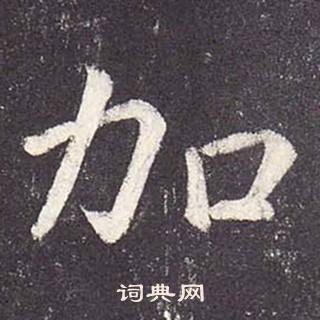 加
词典网